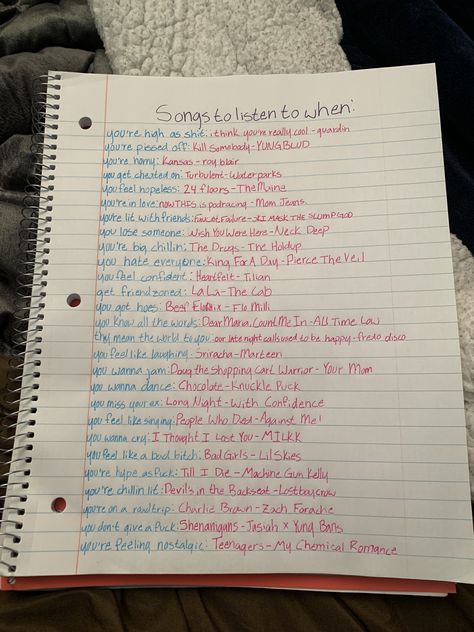 Songs to listen to when:
you're high as shit: i think you're really cool - guardin
you're pissed off: Kill Somebody - YUNGBLUD
you're horny: Kansas - roy blair
you get cheated on: Turbulent - Waterparks
you feel hopeless: 24 floors - The Maine
you're in love: now THIS is podracing - Mom Jeans.
you're lit with friends: Faucet Failure - SKI MASK THE SLUMP GOD
you lose someone: Wish You Were Here - Neck Deep
you're big chillin: The Drugs - The Holdup
you hate everyone: King For A Day - Pierce The Veil
you feel confident: Heartfelt - Tilian
get friendzoned: La La - The Cab
you got hoes: Beef FloMix - Flo Milli
you know all the words: Dear Maria, Count Me In - All Time Low
they mean the world to you: our late night calls used to be happy - fredo disco
you feel like laughing: Sriracha - Marteen
you wanna jam: Doug the Shopping Cart Warrior - Your Mom
you wanna dance: Chocolate - Knuckle Puck
you miss your ex: Long Night - With Confidence
you feel like singing: People Who Died - Against Me!
you wanna cry: I Thought I Lost You - MILKK
you feel like a bad bitch: Bad Girls - Lil Skies
you're hype as fuck: Till I Die - Machine Gun Kelly
you're chillin lit: Devil's in the Backseat - Lostboycrow
you're on a roadtrip: Charlie Brown - Zach Farache
you don't give a fuck: Shenanigans - Jasiah x Yung Bans
you're feeling nostalgic: Teenagers - My Chemical Romance